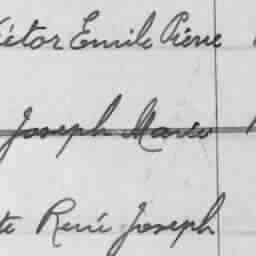 Victor Emile Pierre
Joseph Marie
te René Joseph